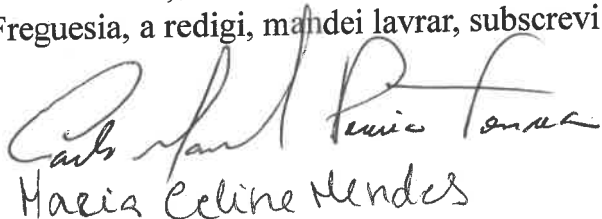 Freguesia, a redigi, mandei lavrar, subscrevi
Carlos Manuel Pereira Fonseca
Maria Celine Mendes